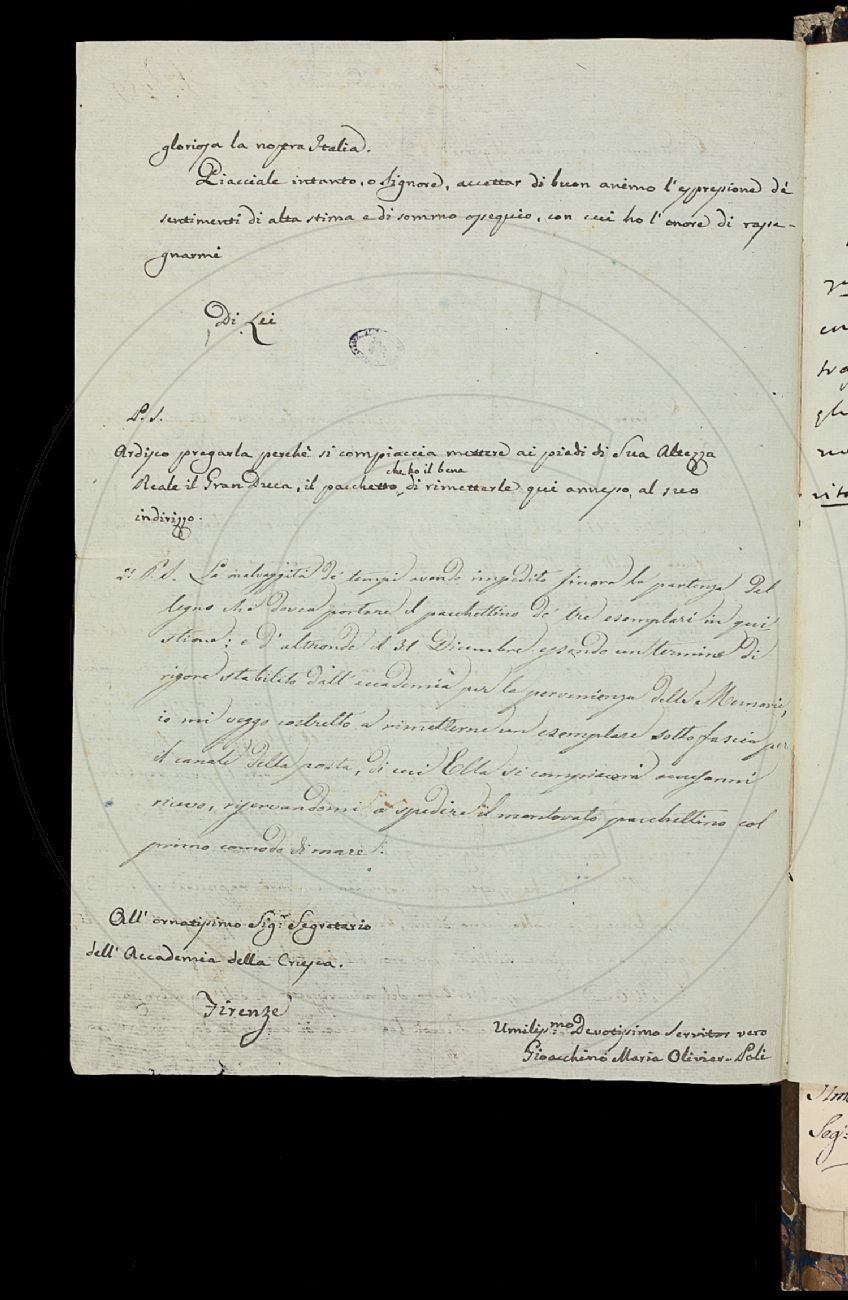 gloriosa la nostra Italia.
Piacciale intanto, o Signore, accettar di buon animo l'espressione de'
sentimenti di alta stima e di sommo ossequio, con cui ho l'onore di rasse-
gnarmi
Di Lei
P. S.
Ardisco pregarla perchè si compiaccia mettere ai piedi di Sua Altezza
che ho il bene
Reale il Gran Duca, il pacchetto di rimetterle qui annesso, al suo
indirizzo.
2º P. S. La malvaggità de' tempi avendo impedito finora la partenza del
legno che dovea portare il pacchettino de' tre esemplari in qui-
stione; e d'altronde il 31 Dicembre essendo un termine di
rigore stabilito dall'accademia per la pervenienza delle Memorie,
io mi veggo costretto a rimetterne un esemplare sotto fascia per
il canale della posta, di cui Ella si compiacerà accusarmi
ricevo, riservandomi a spedire il mentovato pacchettino col
primo comodo di mare.
All' ornatissimo Sigr. Segretario
dell' Accademia della Crusca.
Firenze
Umiliss.mo Devotissimo Servitor vero
Gioacchino Maria Olivier-Poli